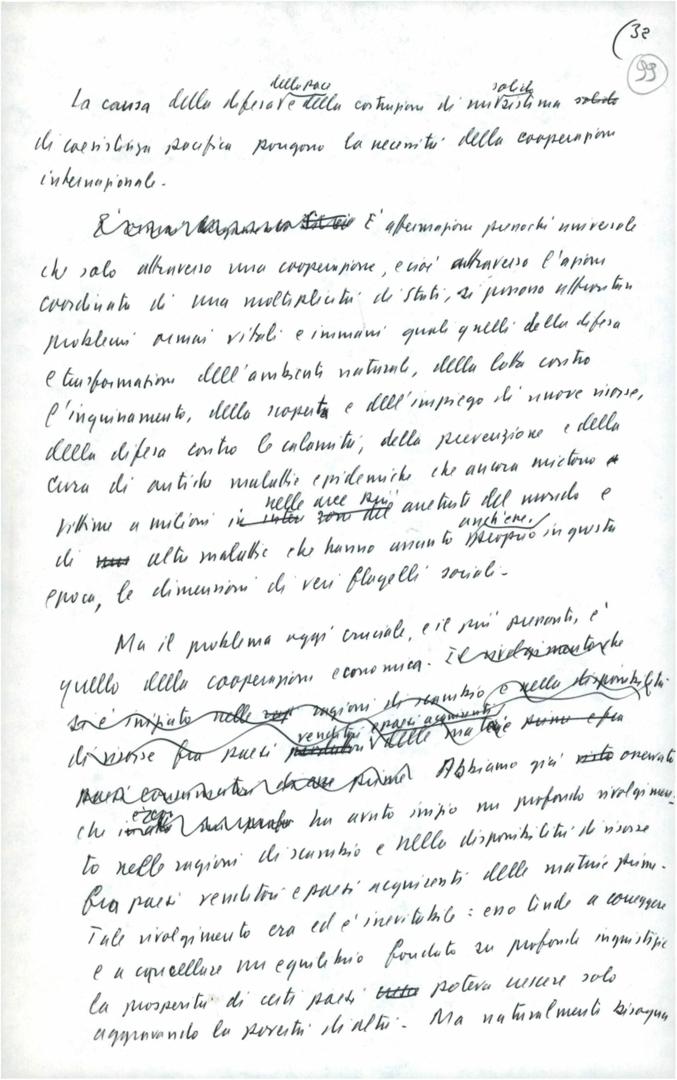 (32
99
della pace solido
La causa della difesa e della costruzione di un sistema solido
di coesistenza pacifica pongono la necessità della cooperazione
internazionale.
È È affermazione pressoché universale
che solo attraverso una cooperazione, e cioè attraverso l'azione
coordinata di una molteplicità di Stati, si possono affrontare
problemi ormai vitali e immani quali quelli della difesa
e trasformazione dell'ambiente naturale, della lotta contro
l'inquinamento, della scoperta e dell'impiego di nuove risorse,
della difesa contro le calamità, della prevenzione e della
cura di antiche malattie epidemiche che ancora mietono
nelle aree più
vittime a milioni in intere zone del arretrate del mondo e
anch'esse
di altre malattie che hanno assunto proprio in questa
epoca, le dimensioni di veri flagelli sociali.
Ma il problema oggi cruciale, e il più pressante, è
quello della cooperazione economica. Il rivolgimento che
si è iniziato nelle ragioni di scambio e nella disponibilità
venditori e paesi acquirenti
di risorse fra paesi delle materie prime e fra
paesi consumatori di prime Abbiamo già visto osservato
esso
che ha avuto inizio un profondo rivolgimen-
to nelle ragioni di scambio e nelle disponibilità di risorse
fra paesi venditori e paesi acquirenti delle materie prime.
Tale rivolgimento era ed è inevitabile: esso tende a correggere
e a cancellare un equilibrio fondato su profonde ingiustizie
la prosperità di certi paesi poteva crescere solo
aggravando la povertà di altri. Ma naturalmente bisogna